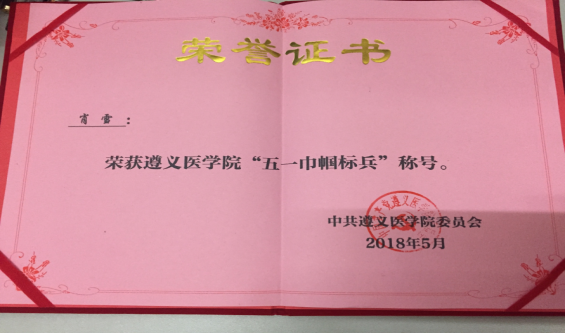 荣誉证书
肖雪：
荣获遵义医学院“五一巾帼标兵”称号。
中共遵义医学院委员会
2018年5月